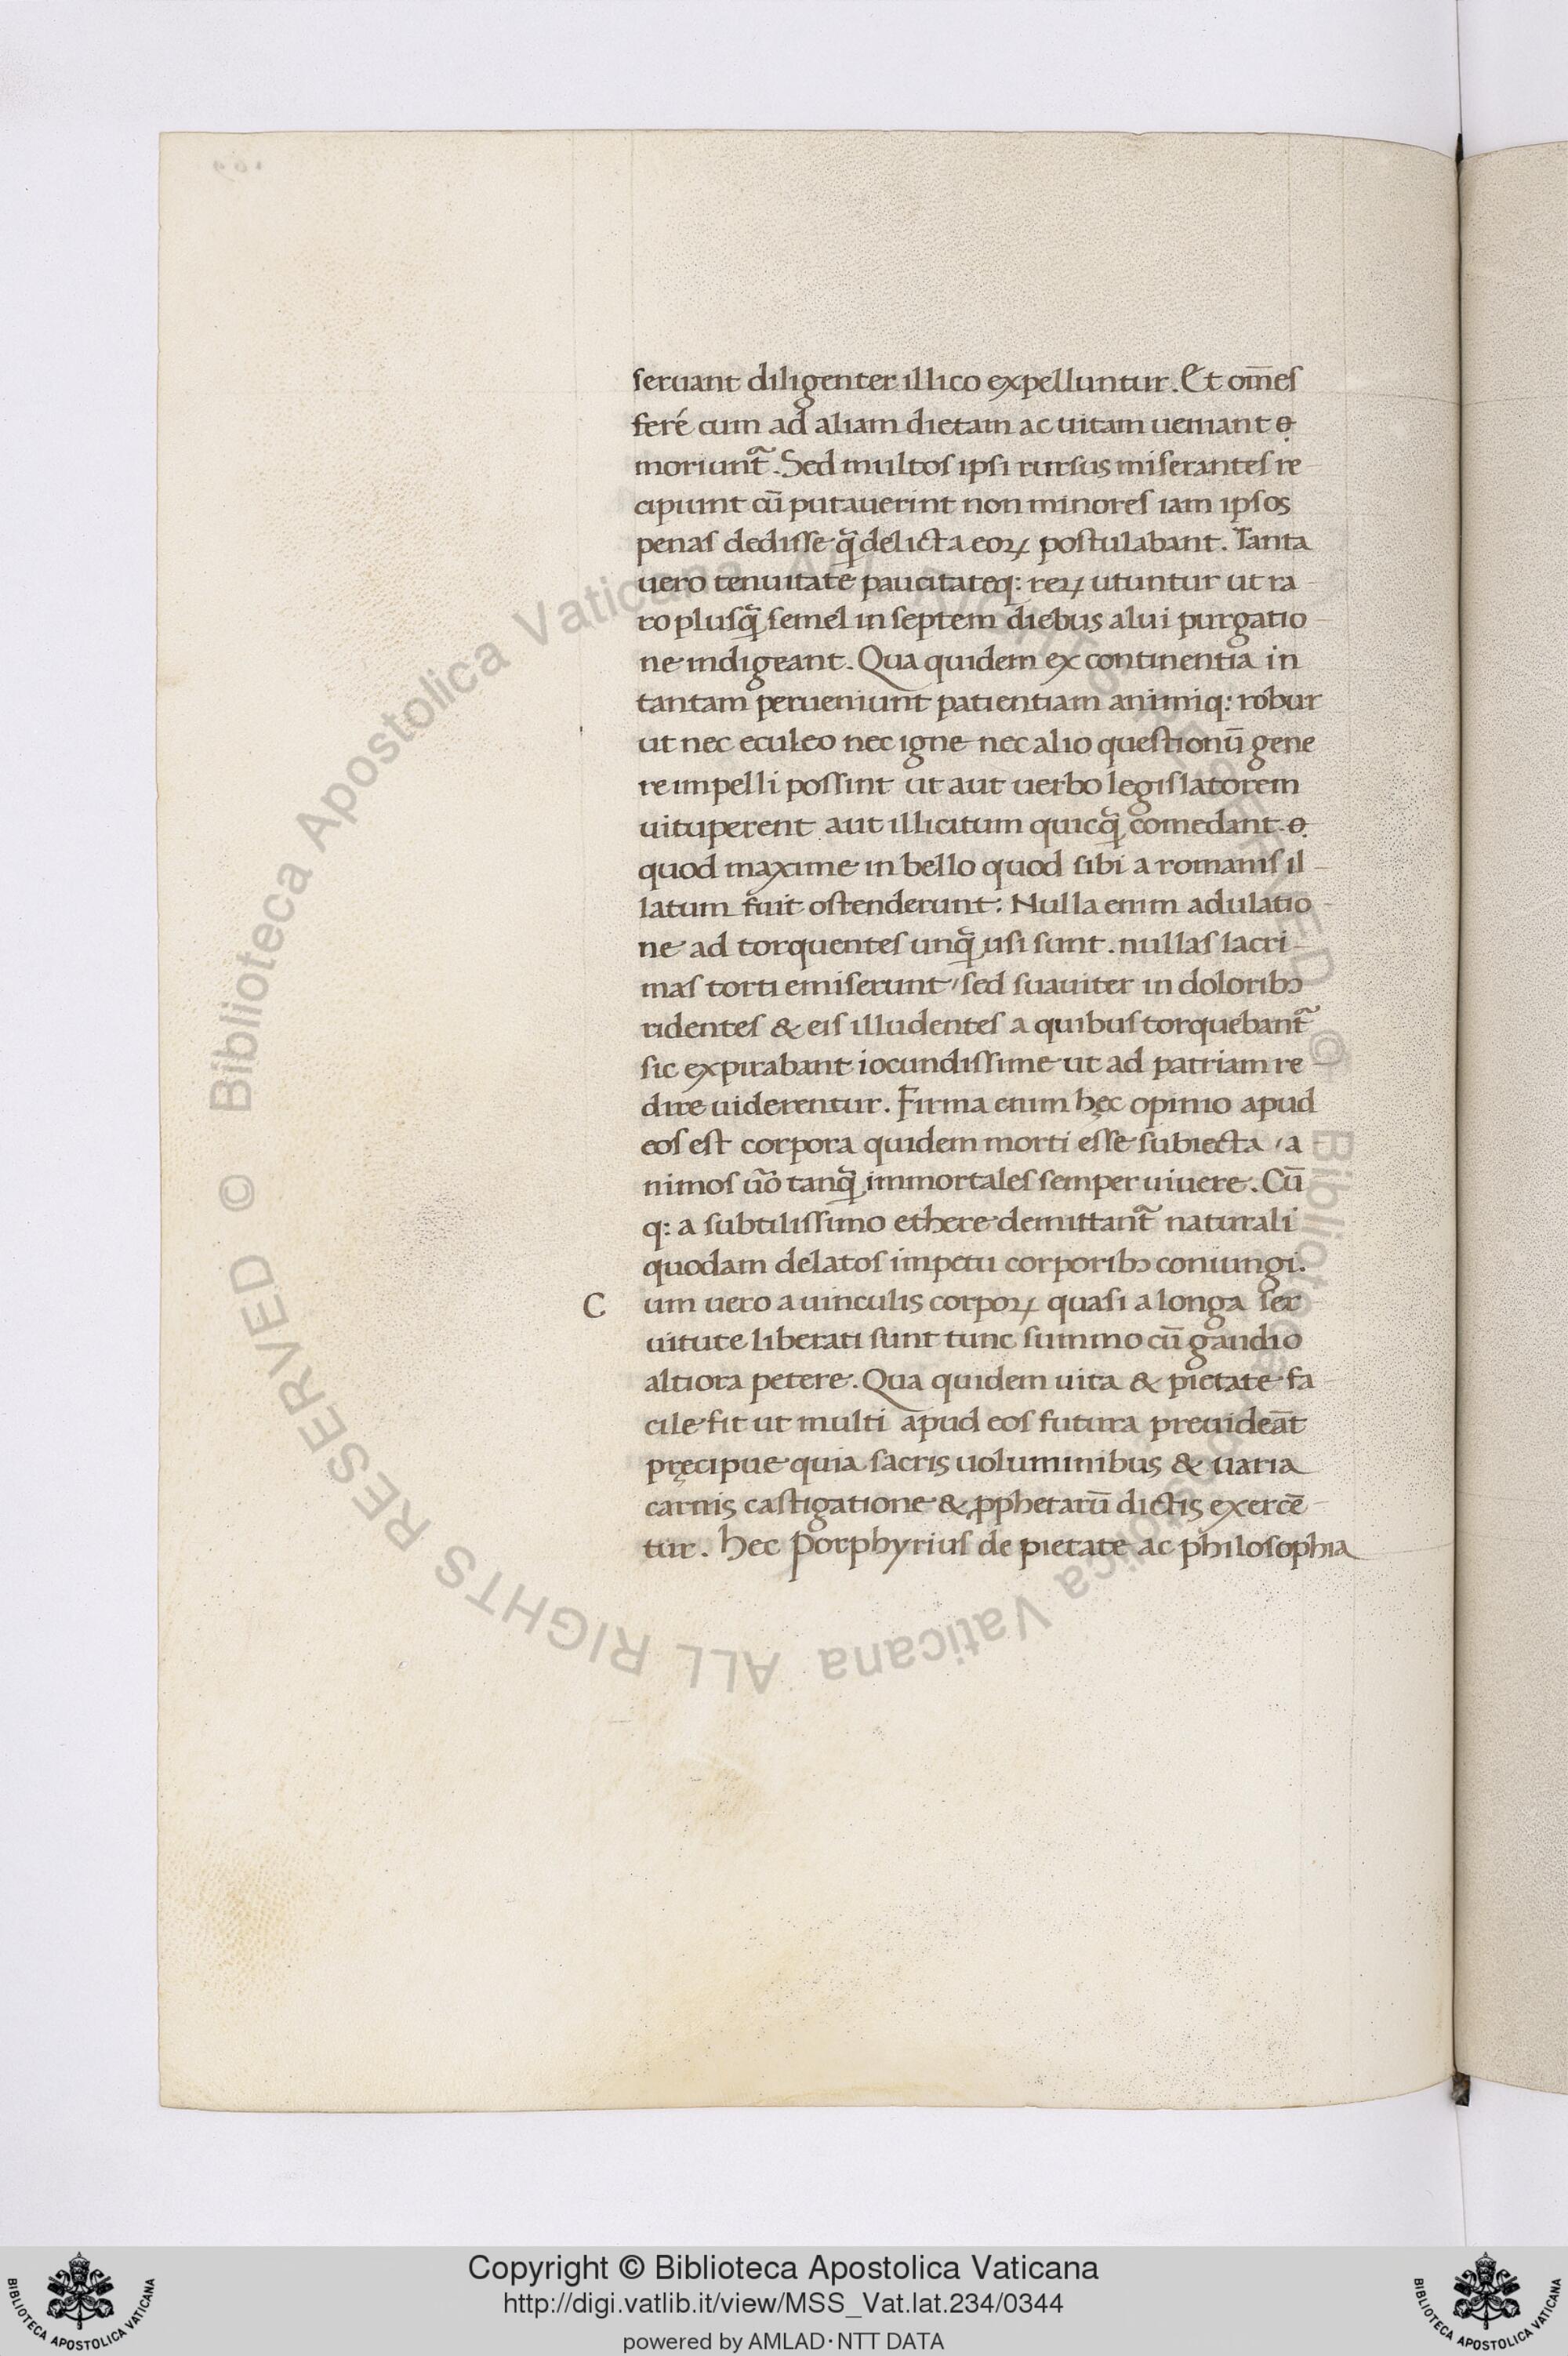 seruant diligenter illico expelluntur. Et om̄es
feré cum ad aliam dietam ac uitam ueniant ꝋ
moriunt᷑. Sed multos ipsi rursus miserantes re
cipiunt cū putauerint non minores iam ipsos
penas dedisse q̃ delicta eoꝝ postulabant. Tanta
uero tenuitate paucitateq: reꝝ utuntur ut ra
ro plusq̃ semel in septem diebus alui purgatio
ne indigeant. Qua quidem ex continentia in
tantam perueniunt patientiam animiq: robur
ut nec eculeo nec igne nec alio questionū gene
re impelli possint ut aut uerbo legislatorem
uituperent aut illicitum quicq̃ comedant. ꝋ
quod maxime in bello quod sibi a romanis il
latum fuit ostenderunt: Nulla enim adulatio
ne ad torquentes unq̃ usi sunt. nullas lacri
mas torti emiserunt / sed suauiter in doloribꝰ
ridentes & eis illudentes a quibus torquebant᷑
sic expirabant iocundissime ut ad patriam re
dire uiderentur. Firma enim hęc opinio apud
eos est corpora quidem morti esse subiecta / a
nimos ūo tanq̃ immortales semper uiuere. Cū
q: a subtilissimo ethere demittant᷑ naturali
quodam delatos impetu corporibꝰ coniungi.
C um uero a uinculis corpoꝝ quasi a longa ser
uitute liberati sunt tunc summo cū gaudio
altiora petere. Qua quidem uita & pietate fa
cile fit ut multi apud eos futura preuideāt
pręcipue quia sacris uoluminibus & uaria
carnis castigatione & ꝓphetarū dictis exercē
tur. Hec Porphyrius de pietate ac philosophia
© Biblioteca Apostolica Vaticana ALL RIGHTS RESERVED © Biblioteca Apostolica Vaticana ALL RIGHTS RESERVED
Copyright © Biblioteca Apostolica Vaticana
http://digi.vatlib.it/view/MSS_Vat.lat.234/0344
powered by AMLAD·NTT DATA
BIBLIOTECA APOSTOLICA VATICANA
BIBLIOTECA APOSTOLICA VATICANA